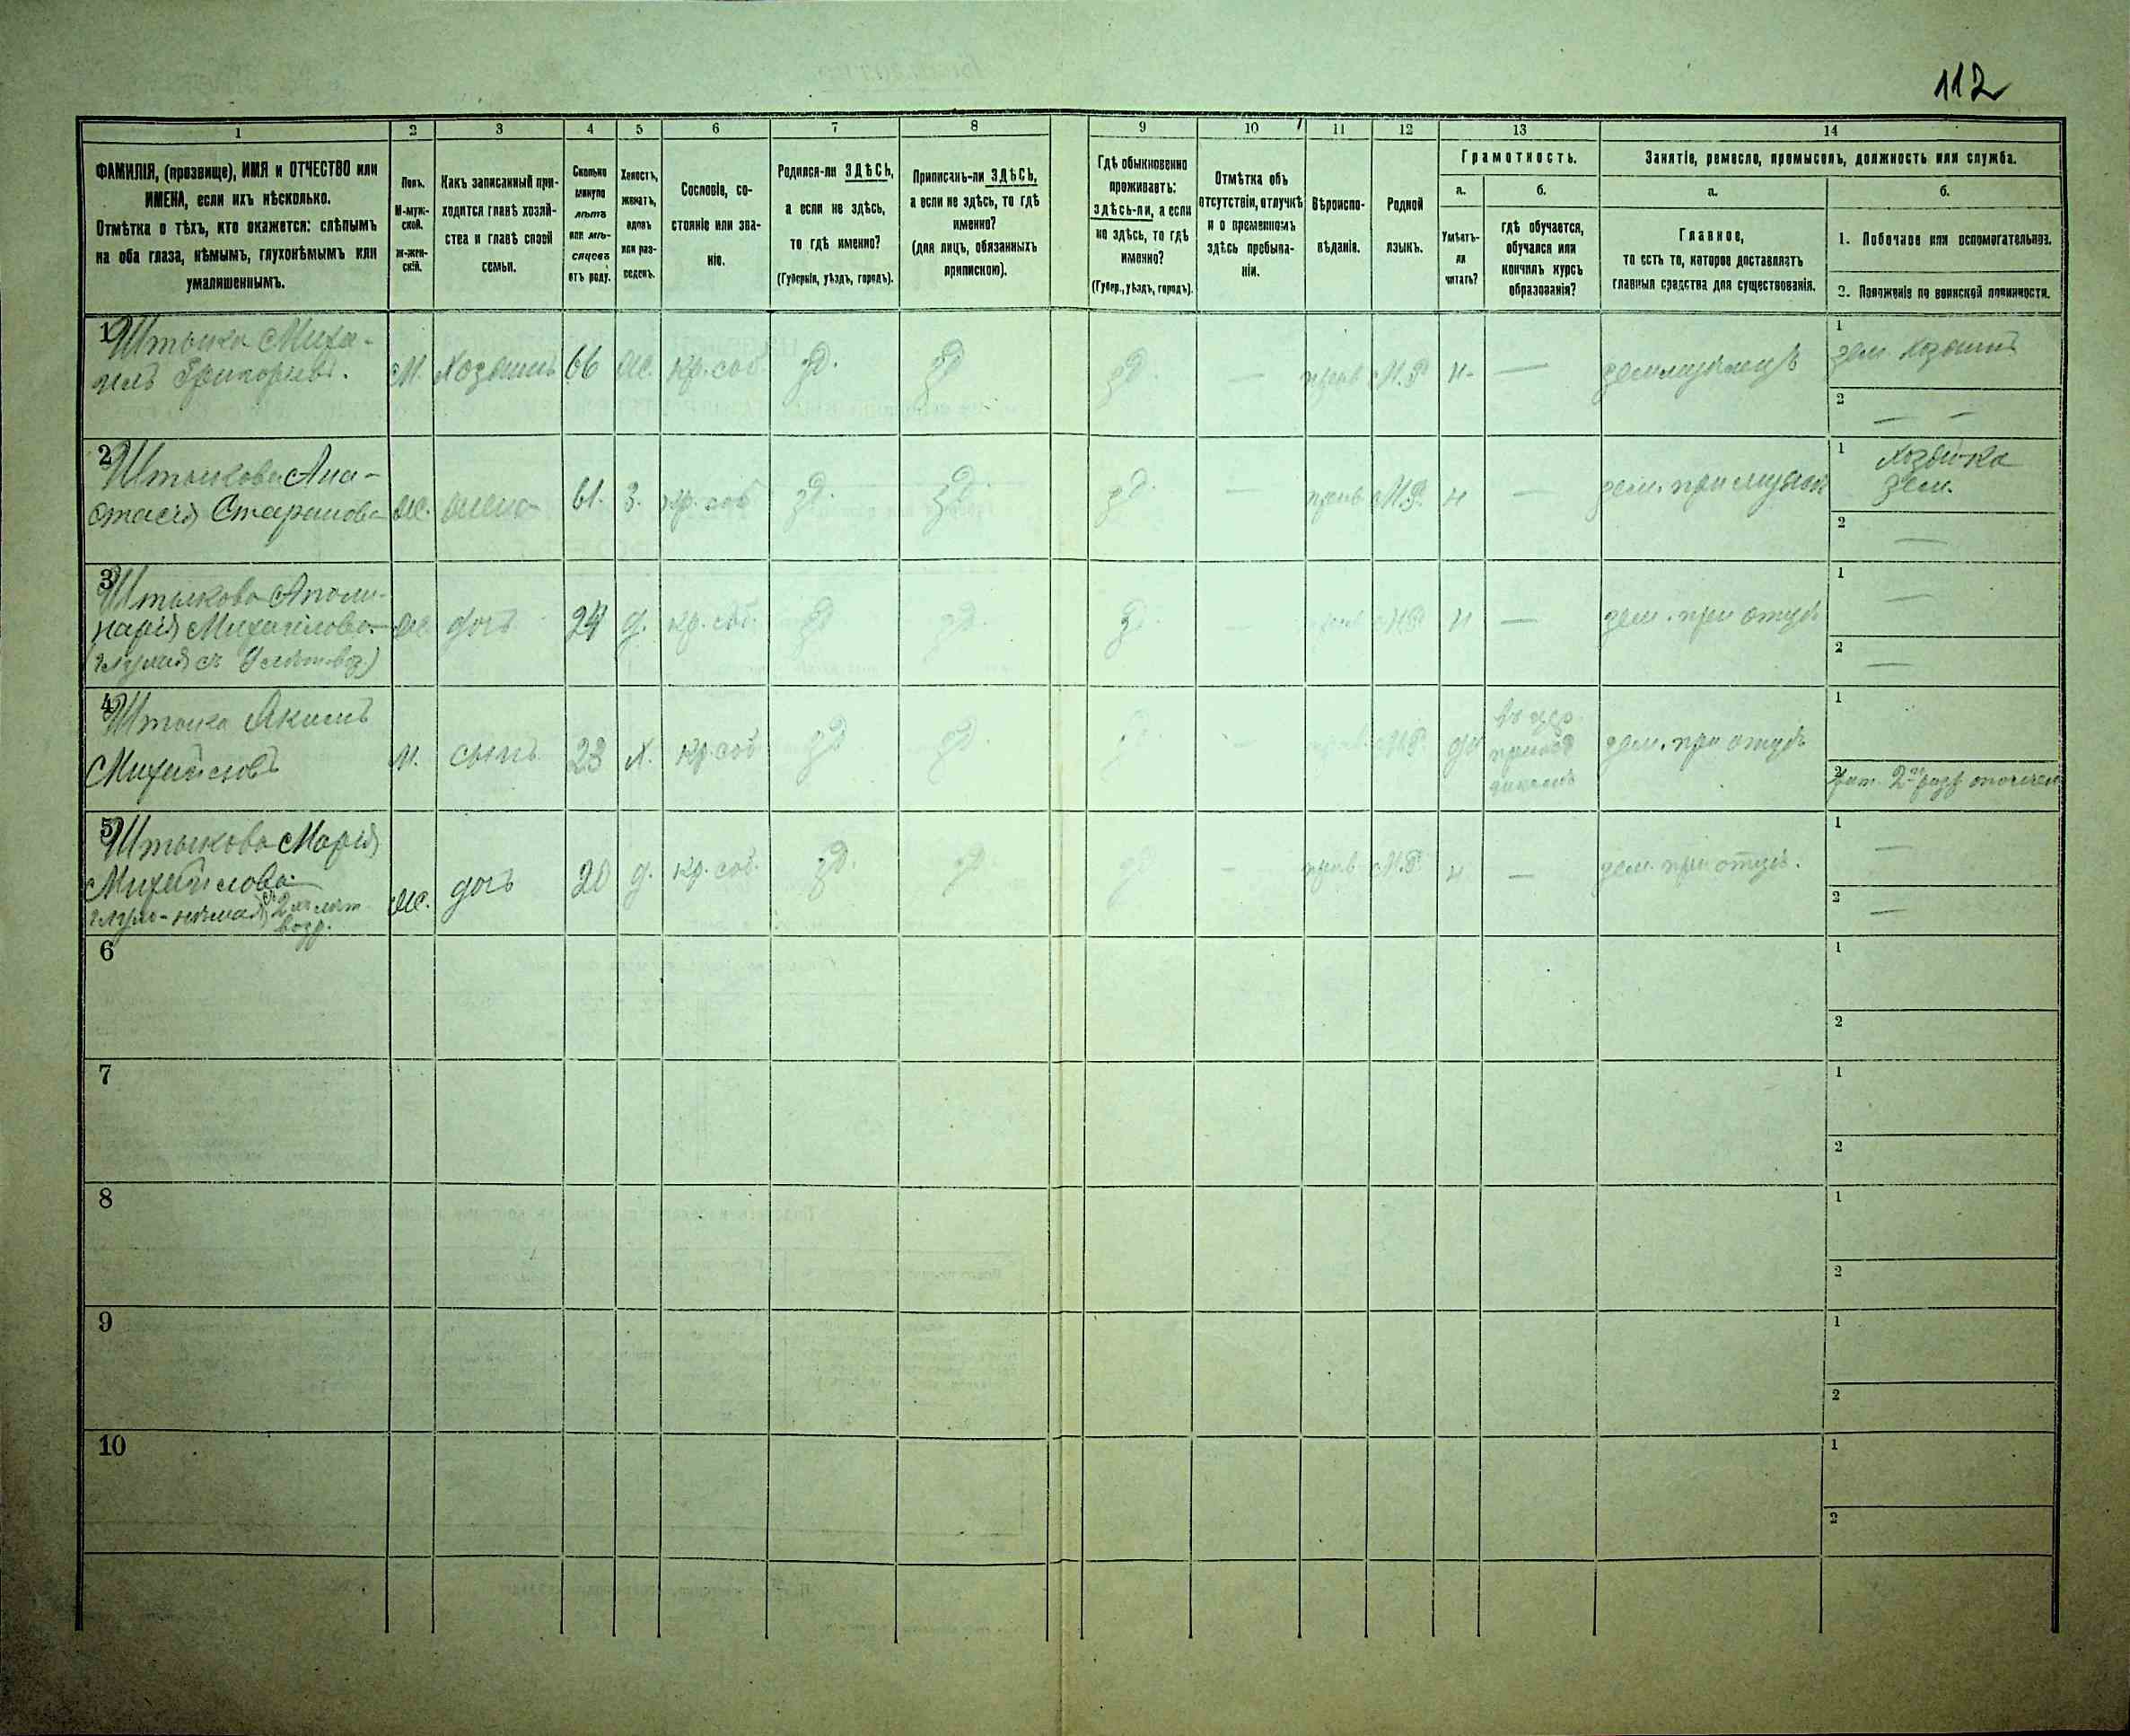 112
1 2 3 4 5 6 7 8 9 10 11 12 13 14
ФАМИЛІЯ, (прозвище), ИМЯ и ОТЧЕСТВО или
ИМЕНА, если ихъ нѣсколько.
Отмѣтка о тѣхъ, кто окажется: слѣпымъ
на оба глаза, нѣмымъ, глухонѣмымъ или
умалишеннымъ.
Полъ.
М-муж-
ской.
ж-жен-
скій.
Какъ записанный при-
ходится главѣ хозяй-
ства и главѣ своей
семьи.
Сколько
минуло
лѣтъ
или мѣ-
сяцевъ
отъ роду.
Холостъ,
женатъ,
вдовъ
или раз-
веденъ.
Сословіе, со-
стояніе или зва-
ніе.
Родился-ли ЗДѢСЬ,
а если не здѣсь,
то гдѣ именно?
(Губернія, уѣздъ, городъ).
Приписанъ-ли ЗДѢСЬ,
а если не здѣсь, то гдѣ
именно?
(для лицъ, обязанныхъ
припискою).
Гдѣ обыкновенно
проживаетъ:
здѣсь-ли, а если
не здѣсь, то гдѣ
именно?
(Губер., уѣздъ, городъ).
Отмѣтка объ
отсутствіи, отлучкѣ
и о временномъ
здѣсь пребыва-
ніи.
Вѣроиспо-
вѣданіе.
Родной
языкъ.
Грамотность.
а.
Умѣетъ-
ли
читать?
б.
гдѣ обучается,
обучался или
кончилъ курсъ
образованія?
Занятіе, ремесло, промыселъ, должность или служба.
а.
Главное,
то есть то, которое доставляетъ
главныя средства для существованія.
б.
1. Побочное или вспомогательное.
2. Положеніе по воинской повинности.
1
Штыка Миха-
илъ Григорьевъ.
М. Хозяинъ 66 ж. кр. соб. зд. зд. зд. — прав М.Р. н. — земледѣлецъ
1 зем. хозяинъ
2 — —
2
Штыкова Ана-
стасія
ж. жена 61. з. кр. соб зд. зд. зд. — прав М.Р. н — зем. при мужѣ
1 Хозяйка
зем.
2 —
3
Штыкова Аполи-
нарія Михайлова
ж. дочь 24 д. кр. соб. зд зд. зд. — прав М.Р. н — зем. при отцѣ
1 —
2 —
4
Штыка Якимъ
Михайловъ
м. сынъ 23 х. кр. соб зд зд. зд. — прав М.Р. да
зем. при отцѣ
1
2
5
Штыкова Марія
Михайлова
глухо-нѣмая съ 2хъ лѣт.
возр.
ж. дочь 20 д. кр. соб. зд. зд. зд. — прав М.Р. н — зем. при отцѣ.
1 —
2 —
6
1
2
7
1
2
8
1
2
9
1
2
10
1
2